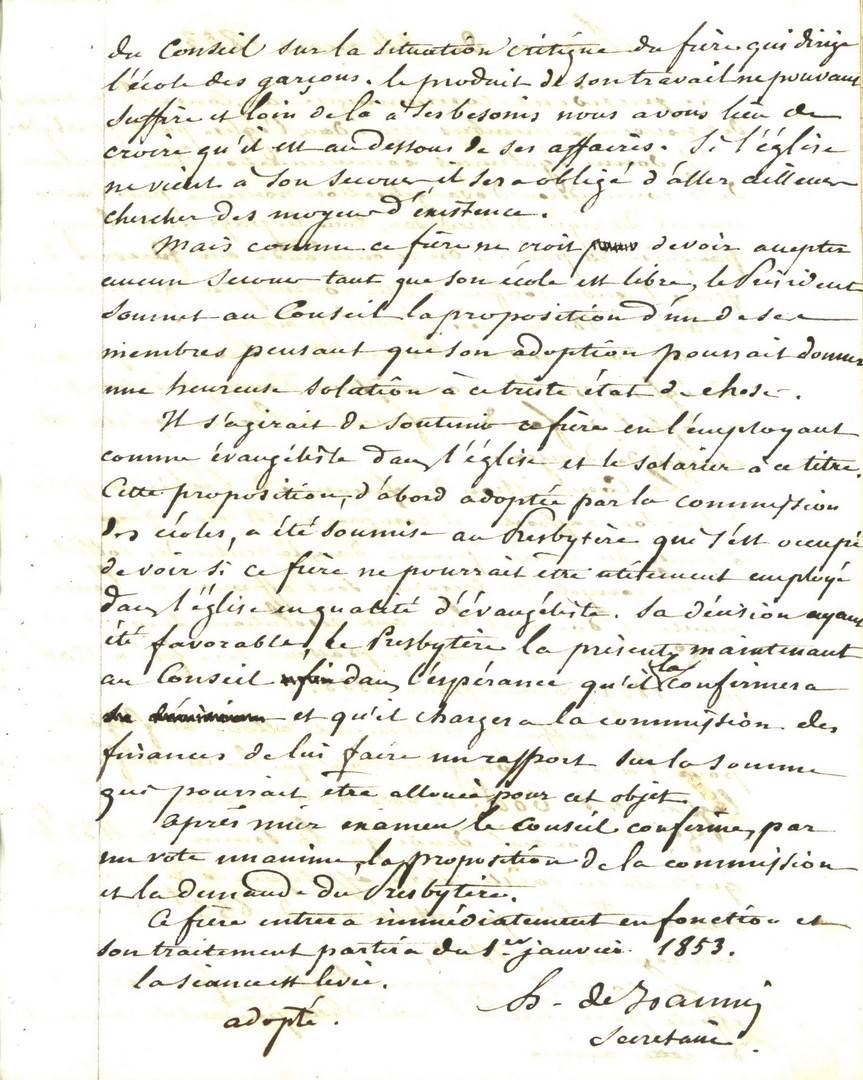 du Conseil sur la situation critique du frère qui dirige
l'école des garçons. le produit de son travail ne pouvant
suffire et loin de là à ses besoins nous avons lieu de
croire qu'il est au dessous de ses affaires. Si l'église
ne vient à son secours il sera obligé d'aller ailleurs
chercher des moyens d'éxistence.
Mais comme ce frère ne croit devoir accepter
aucun secours tant que son école est libre, le Président
soumet au Conseil la proposition d'un de ses
membres pensant que son adoption pourrait donner
une heureuse solution à ce triste état de chose.
Il s'agirait de soutenir ce frère en l'employant
comme évangéliste dans l'église et le salarier à ce titre.
Cette proposition, d'abord adoptée par la commission
des écoles, a été soumise au Presbytère qui s'est occupé
de voir si ce frère ne pourrait être utilement employé
dans l'église en qualité d'évangéliste. Sa décision ayant
été favorable, le Presbytère la présente maintenant
au Conseil dans l'espérance qu'il la confirmera
et qu'il chargera la commission des
finances de lui faire un rapport sur la somme
qui pourrait être allouée pour cet objet.
Après mûr examen le Conseil confirme, par
un vote unanime, la proposition de la commission
et la demande du Presbytère.
Ce frère entrera immédiatement en fonction et
son traitement partira du 1er janvier 1853.
la séance est levée.
adopté.
de Joannis
Secrétaire.